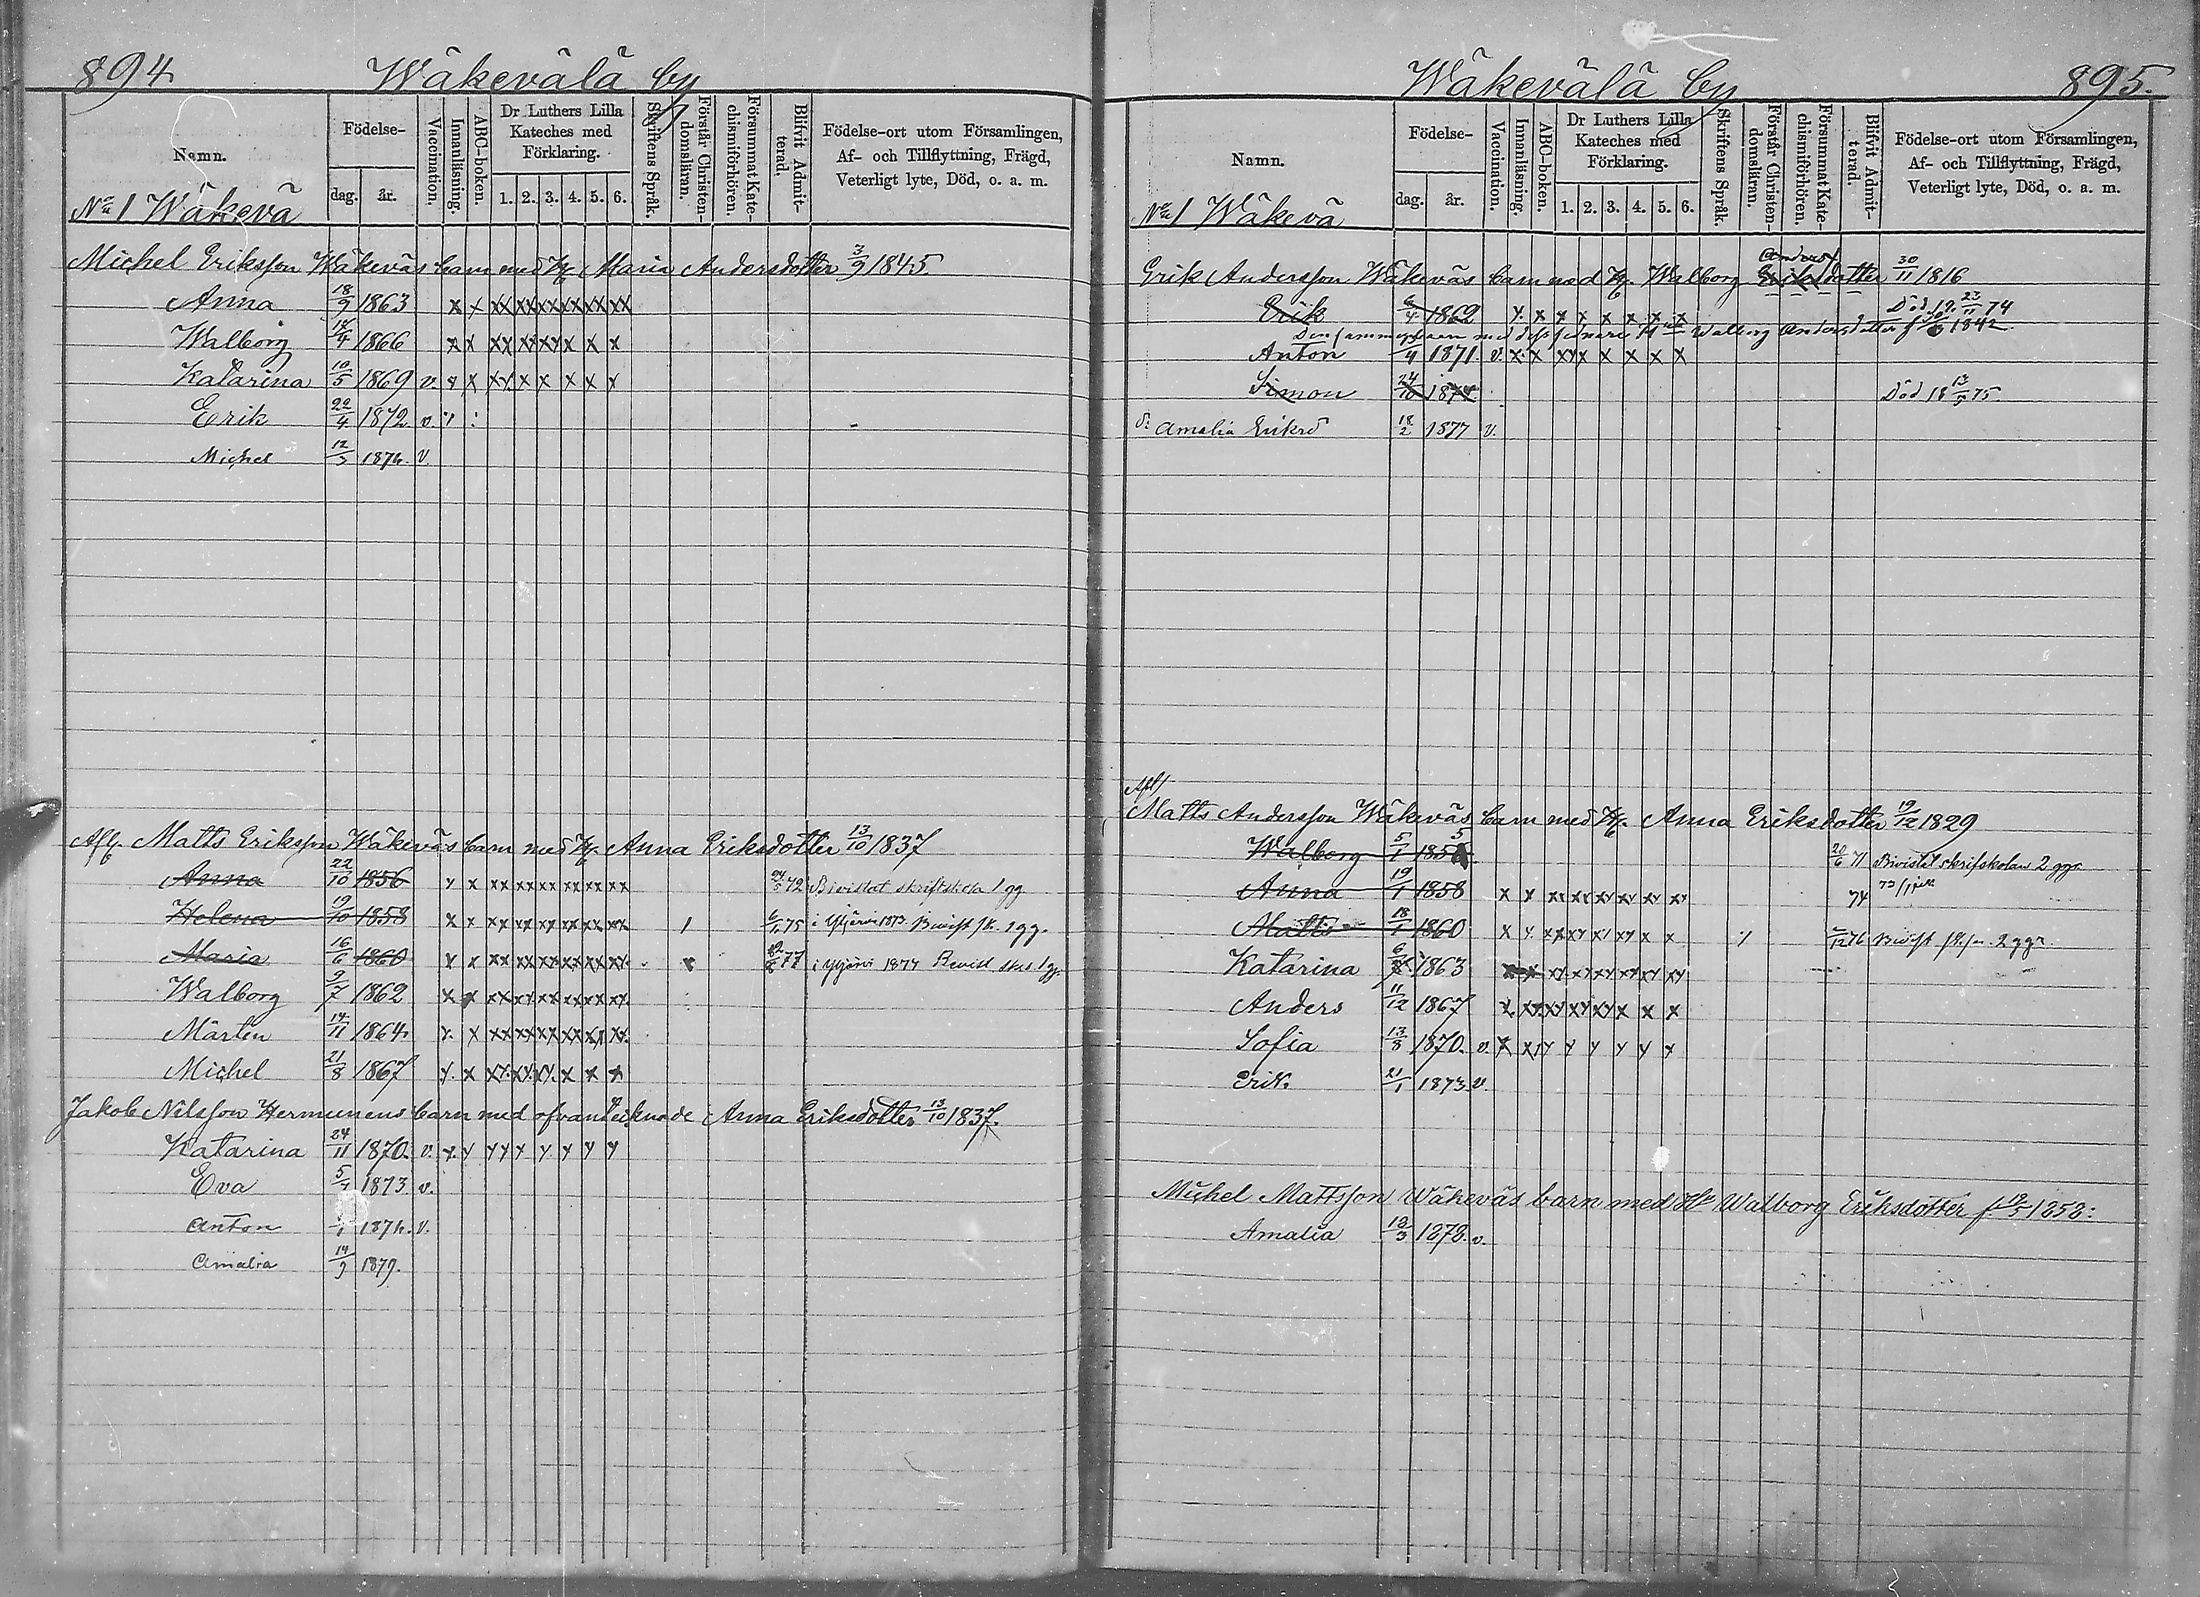 894 Wäkevälä by
Namn. Födelse- dag. år. Vaccination. Innanläsning. ABC-boken. Dr Luthers Lilla Kateches med Förklaring. 1. 2. 3. 4. 5. 6. Skriftens Språk. Förstår Christendomsläran. Försummat Katechismiförhören. Blifvit Admitterad. Födelse-ort utom Församlingen, Af- och Tillflyttning, Frägd, Veterligt lyte, Död, o. a. m.
No 1 Wäkevä
Michel Eriksson Wäkeväs barn med H. Maria Andersdotter 7/9 1845
Anna 18/9 1863 x x xx xx xx xx xx xx
Walborg 17/4 1866 x x xx xx x x x
Katarina 10/5 1869 v. x x xx x x x x x
Erik 22/4 1872 v.
Michel 12/5 1874. v.
Afl. Matts Eriksson Wäkeväs barn med H. Anna Eriksdotter 13/10 1837
Anna 22/10 1856 x x xx xx xx xx xx xx 72 Bivistat skriftskola 1 gg
Helena 19/10 1858 x x xx xx xx xx xx xx 1 75 1873. Bivist sk. 1 gg.
Maria 16/6 1860 x x xx xx xx xx xx xx 77 1877 Bevist 1 gg.
Walborg 9/7 1862 x x xx xx xx xx xx xx
Mårten 14/11 1864 x x xx xx xx xx xx xx
Michel 21/8 1867 x. x xx xx xx x x x
Jakob Nilsson Hermunens barn med ofvanteiknade Anna Eriksdotter 13/10 1837.
Katarina 24/11 1870. v. x. y yy y y y y y
Eva 1873. v.
Anton 1874. v.
Amalia 14/9 1879.
Wäkevälä by 895.
Namn. Födelse- dag. år. Vaccination. Innanläsning. ABC-boken. Dr Luthers Lilla Kateches med Förklaring. 1. 2. 3. 4. 5. 6. Skriftens Språk. Förstår Christendomsläran. Försummat Katechismiförhören. Blifvit Admitterad. Födelse-ort utom Församlingen, Af- och Tillflyttning, Frägd, Veterligt lyte, Död, o. a. m.
No 1 Wäkevä
Anders
Erik Andersson Wäkeväs barn med H. Walborg Eriksdotter 30/11 1816
Erik 1862 x. x x x x x x x Död 23/11 74
med dess senare Walborg Andersdotter 1842.
Anton 1871. v. x. x xx x x x x x
Simon 24/10 1874. Död 18 13/5 75
d: Amalia Eriksd 18/2 1877 v.
Afl/
Matts Andersson Wäkeväs barn med H. Anna Eriksdotter 19/12 1829
Walborg 5/1 1855 20/6 71 Bivistat skrifskolan 2 ggr
Anna 19/1 1858 x x xx xx xx xx xx xx 74
Matts 18/1 1860 x x. xx xx xx xx x x 76 Bivist 2 ggr.
Katarina 1863 xx xx xx xx xx xx
Anders 11/12 1867 x xx xx xx xx x x x
Sofia 13/8 1870. v. x xx y y y y y y
Erik. 21/1 1873. v.
Michel Mattsson Wäkeväs barn med H. Walborg Eriksdotter f. 1858:
Amalia 18/3 1878. v.